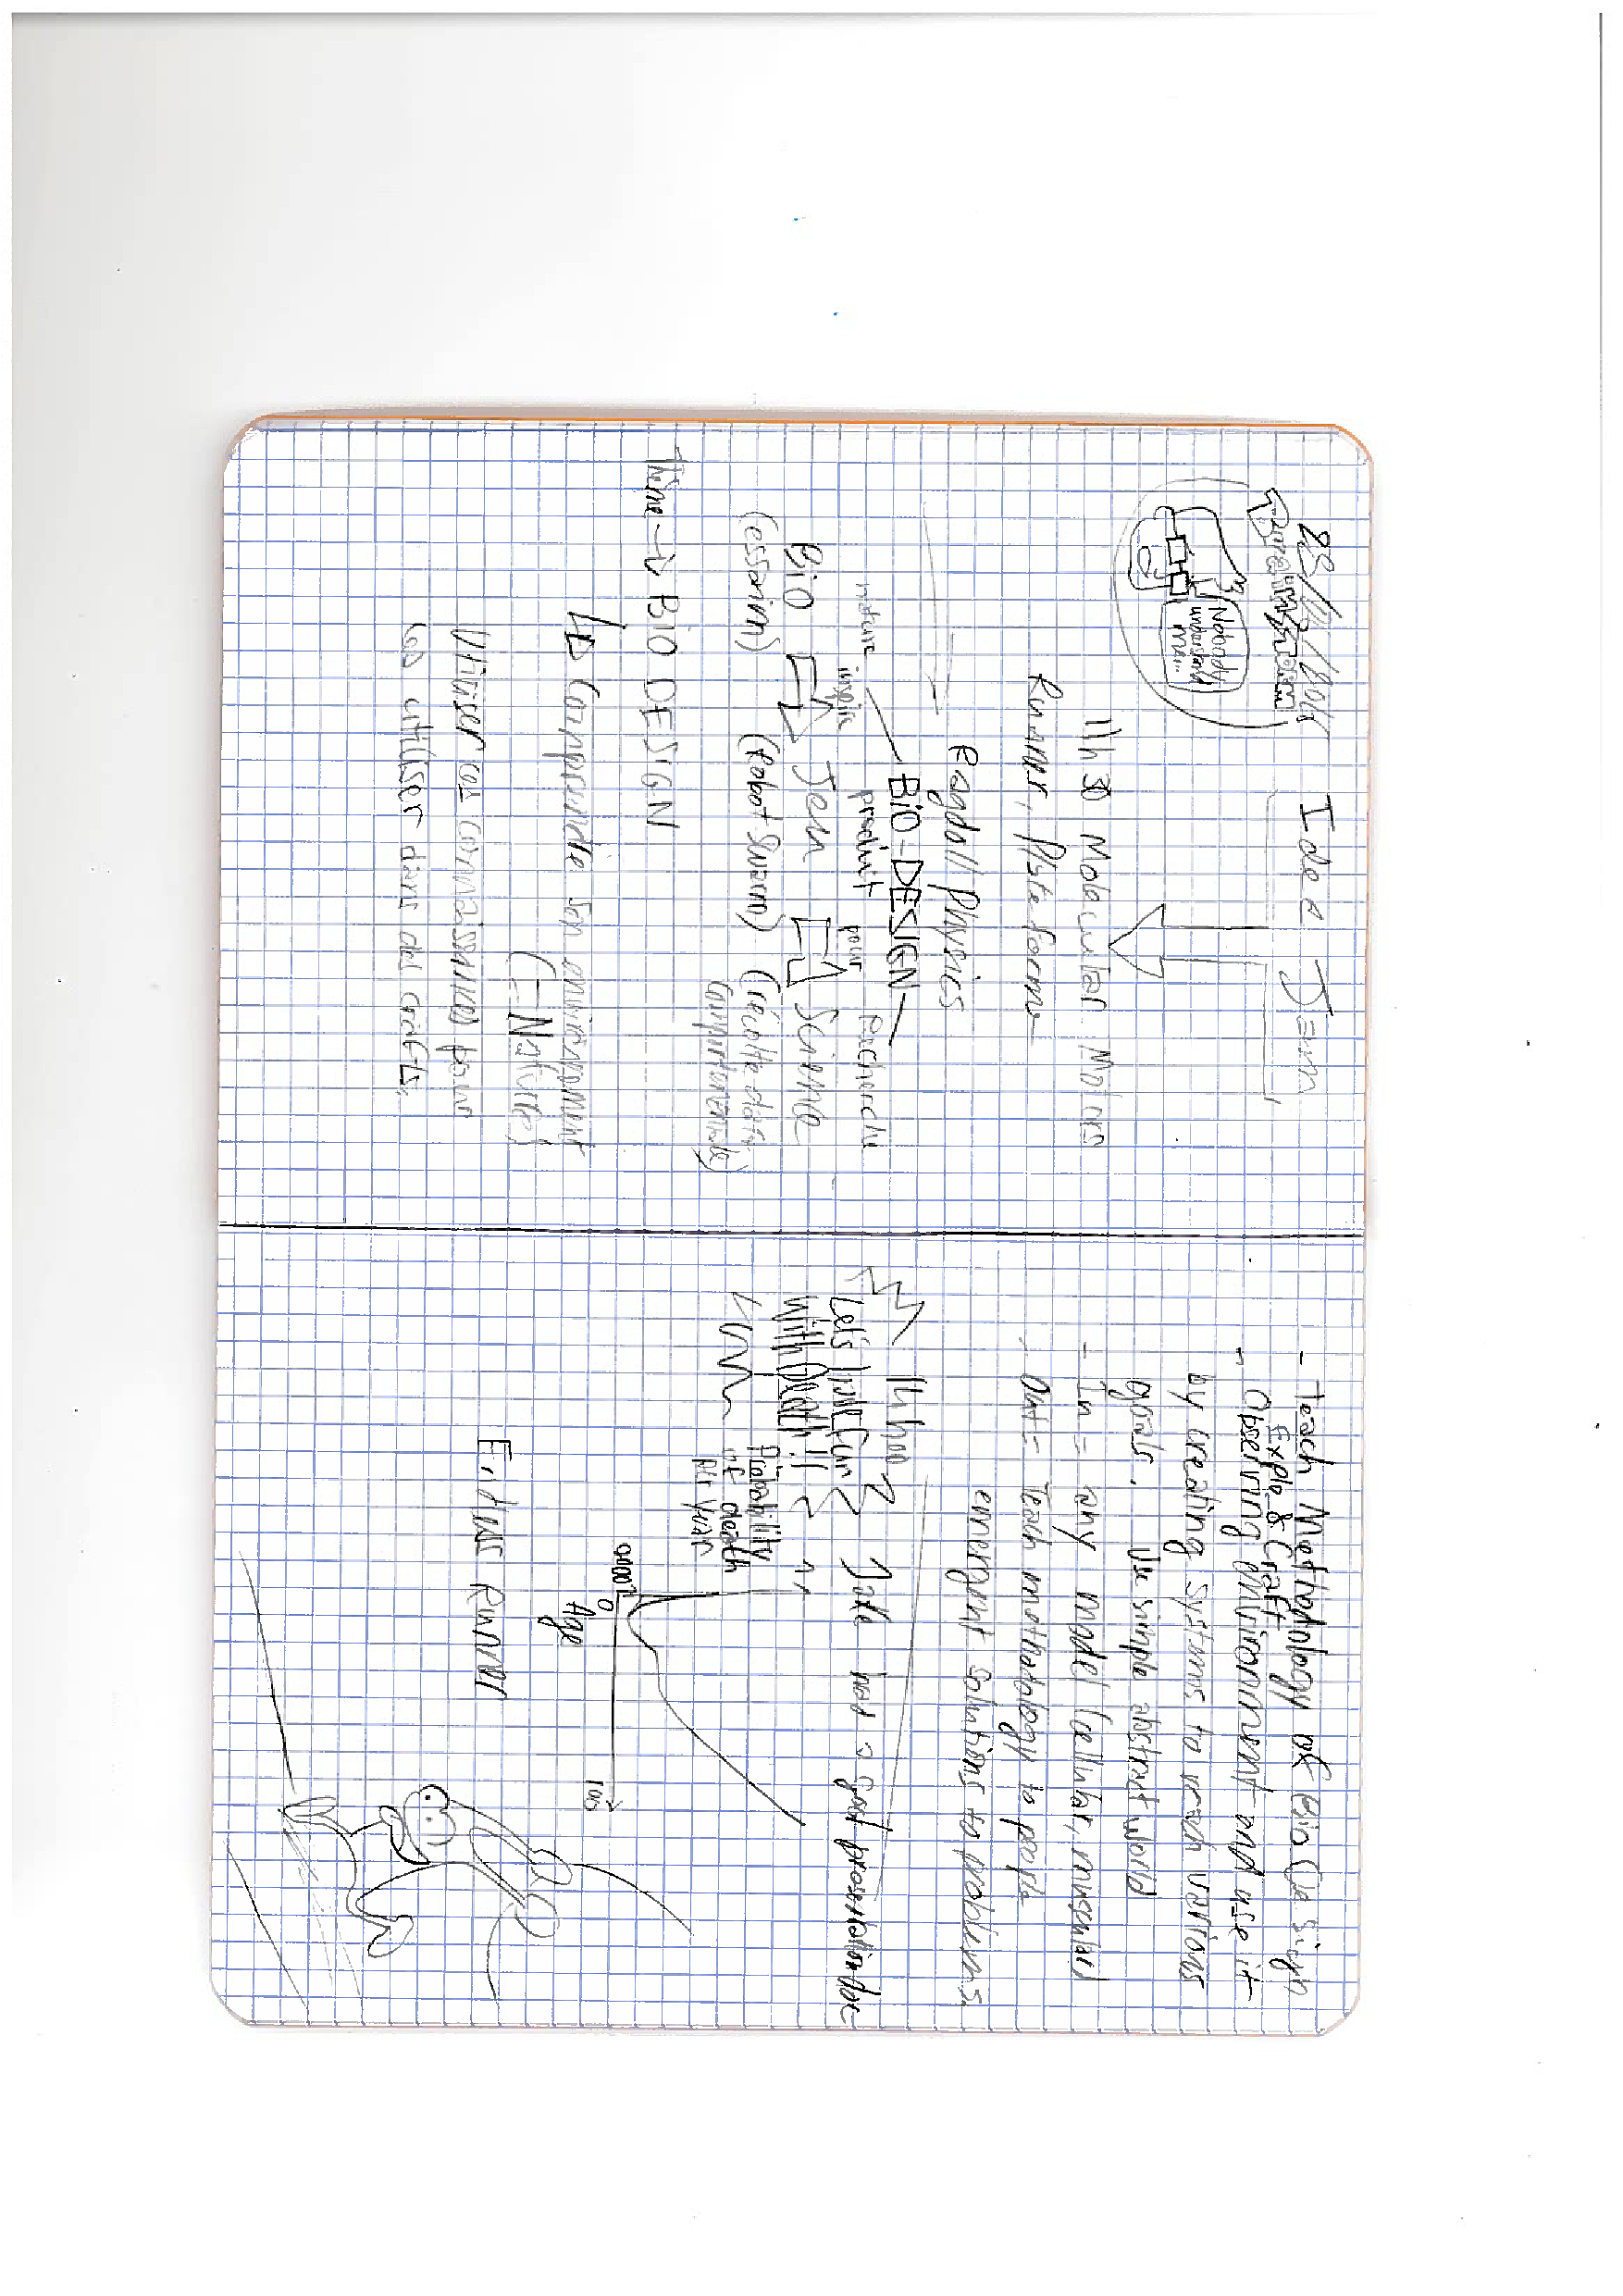 Idea Jam
Nobody
understand
me...
11h30 Molecular Motors
Runner, Plateform
Ragdoll Physics
BIO-DESIGN
nature inspire product pour recherche
BiO Jeu Science
(essaim) (Robot Swarm) (récolte data
comportementale)
Thème → BIO DESIGN
Comprendre son environnement
(= Nature)
Utiliser ces connaissances pour
les utiliser dans des crafts.
- Teach Methodology of Bio Design
Explo & Craft
- Observing environnment and use it
by creating systems to reach various
goals. Use simple abstract world
- In = any model (cellular, muscular)
Out = Teach methodology to people
emergent solutions to problems.
14h00 Jake has a good presentation
Let's have fun
With Death !!
Probability
of death
per year
0.0001
0
Age
105
Endless Runner